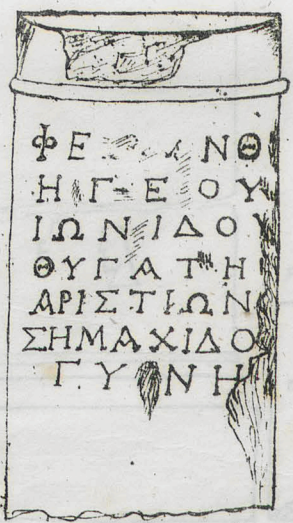 ΦΕ ΝΘ
Η ΓΕΟΥ
ΙΩΝΙΔΟΥ
ΘΥΓΑΤΗ
ΑΡΙΣΤΙΩΝ
ΣΗΜΑΧΙΔΟ
ΓΥΝΗ